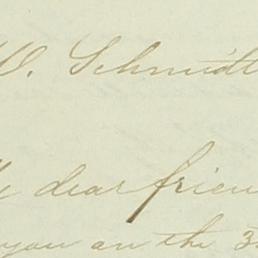 W. Schmidt
dear frien
you on the 3